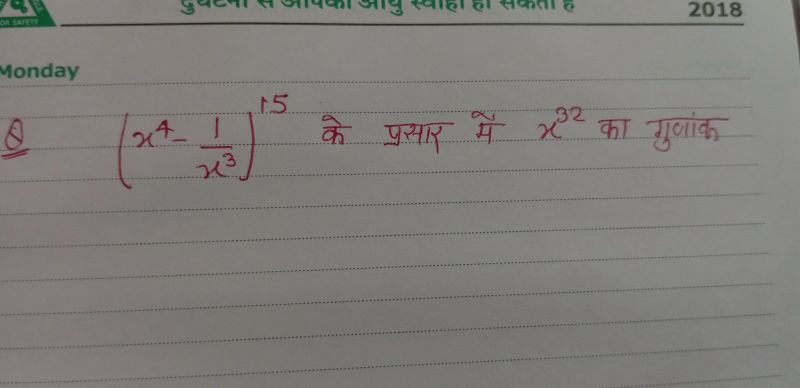 FOR SAFETY
दुर्घटना से आपकी आयु स्वाहा हो सकती है
2018
Monday
Q (x⁴ - 1/x³)¹⁵ के प्रसार में x³² का गुणांक